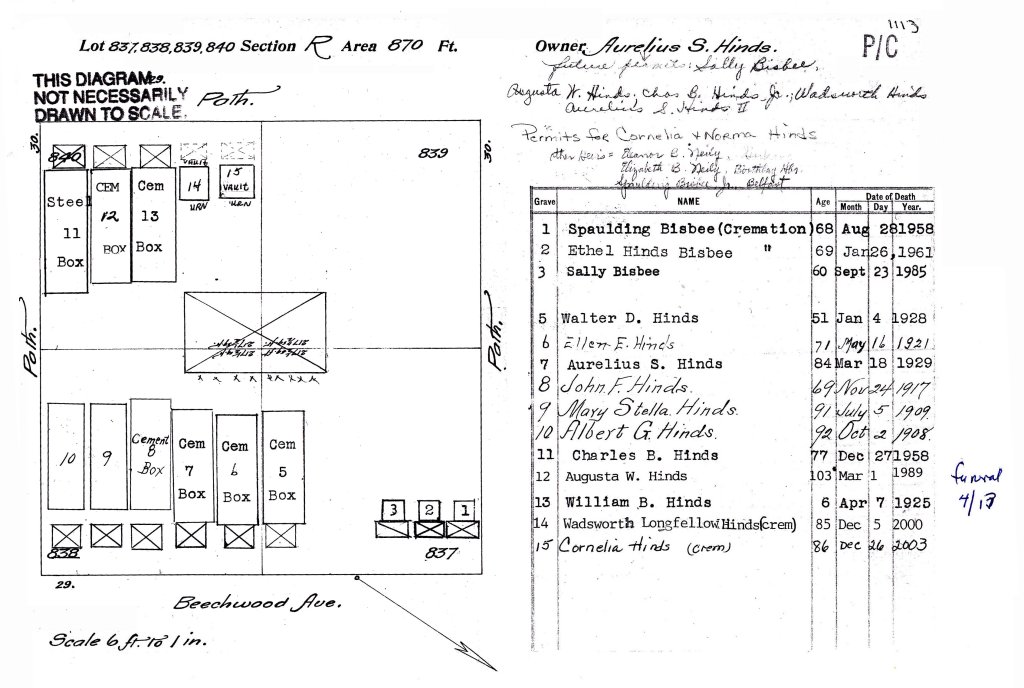 1113
Lot 837,838,839,840 Section R Area 870 Ft.
Owner Aurelius S. Hinds.
P/C
future permits: Sally Bisbee,
Augusta W. Hinds, Chas B. Hinds Jr.; Wadsworth Hinds
Aurelius S. Hinds II
Permits for Cornelia + Norma Hinds
Other Heirs = Eleanor B. Neily,
Elizabeth B. Neily, Boothbay Hbr.
Spaulding Bisbee Jr. Belfast
THIS DIAGRAM
NOT NECESSARILY
DRAWN TO SCALE.
29.
Path.
30.
30.
840
839
Steel
11
Box
CEM
12
BOX
Cem
13
Box
VAULT
14
URN
15
VAULT
URN
Path.
Path.
10
9
Cement
8
Box
Cem
7
Box
Cem
6
Box
Cem
5
Box
3
2
1
838
837
29.
Beechwood Ave.
Scale 6 ft. to 1 in.
Grave NAME Age Date of Death
Month Day Year.
1 Spaulding Bisbee (Cremation) 68 Aug 28 1958
2 Ethel Hinds Bisbee " 69 Jan 26, 1961
3 Sally Bisbee 60 Sept 23 1985
5 Walter D. Hinds 51 Jan 4 1928
6 Ellen E. Hinds 71 May 16 1921
7 Aurelius S. Hinds 84 Mar 18 1929
8 John F. Hinds. 69 Nov 24 1917
9 Mary Stella Hinds. 91 July 5 1909.
10 Albert G. Hinds. 92 Oct 2 1908.
11 Charles B. Hinds 77 Dec 27 1958
12 Augusta W. Hinds 103 Mar 1 1989
funeral
4/17
13 William B. Hinds 6 Apr 7 1925
14 Wadsworth Longfellow Hinds (crem) 85 Dec 5 2000
15 Cornelia Hinds (crem) 86 Dec 26 2003